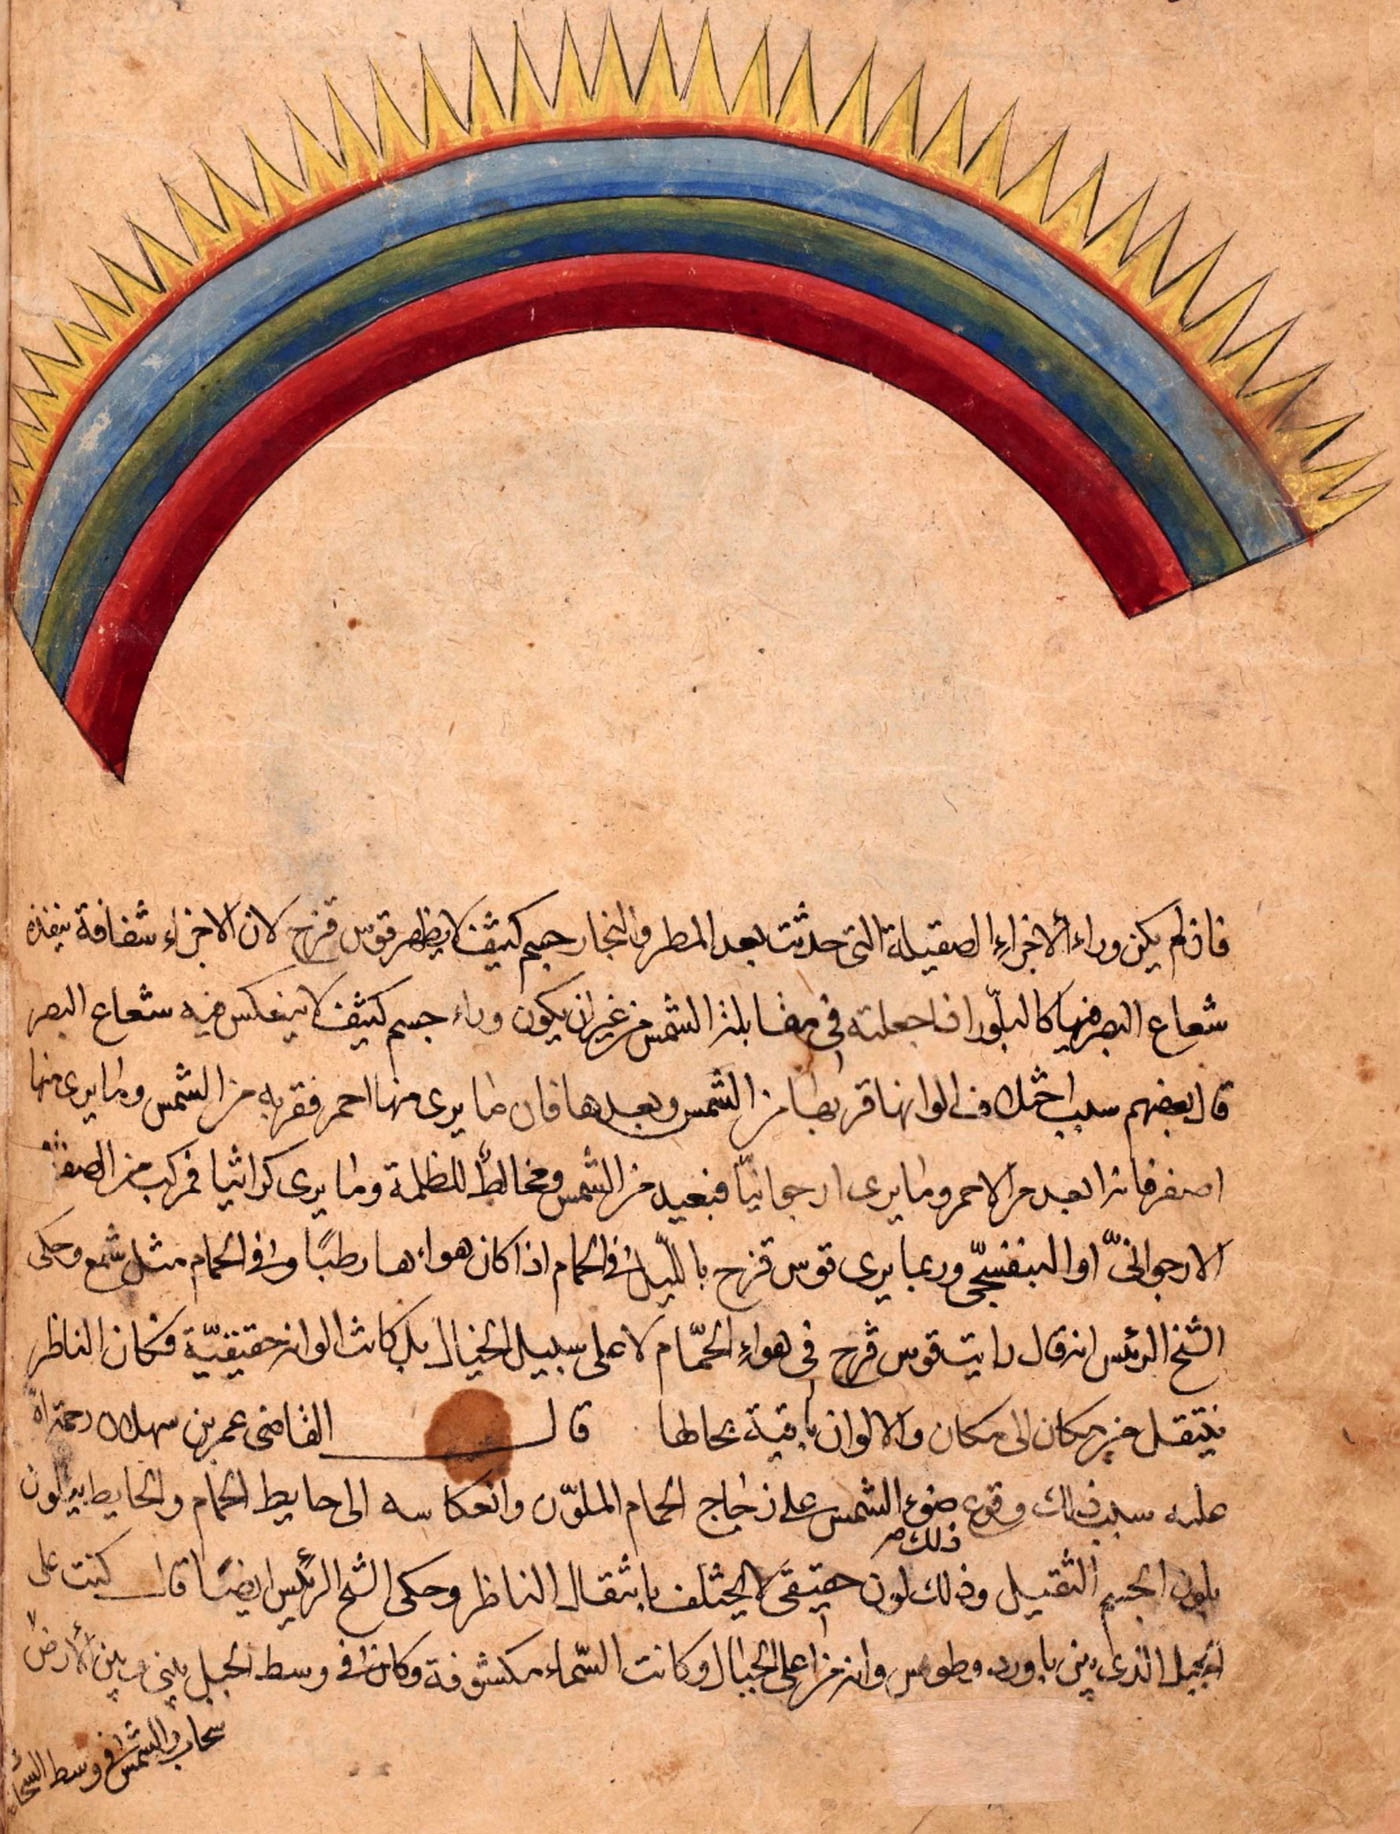 فان لم يكن وراء الاجزاء الصقيلة التى حدثت بعد المطر والبخار جسم كثيف لا يظهر قوس قزح لان الاجزاء شفافة ينفذه
شعاع البصر فيها كالبلّور اذا جعلته فى مقابلة الشمس من غير ان يكون وراء جسم كثيف لا ينعكس فيه شعاع البصر
قال بعضهم سبب اختلاف الوانها قربها من الشمس وبعدها فان ما يرى منها احمر فقربه من الشمس وما يرى منها
اصفر فانه ابعد من الاحمر وما يرى ارجوانيّا فبعيد من الشمس ومخالط للظلمة وما يرى كراثيا فمركب من الصفرة
الارجوانىّ او البنفسجّى وربما يرى قوس قزح بالليل فى الحمام اذا كان هواءها رطبًا وفى الحمام مثل شمع وحكى
الشيخ الرئيس انه قال رايت قوس قزح فى هواء الحمّام لا على سبيل الخيال بل كانت الوانه حقيقيّة فكان الناظر
ينتقل من مكان الى مكان والالوان باقية بحالها قال القاضى عمر بن سهلان رحمة الله
عليه سبب ذلك وقوع ضوء الشمس على زجاج الحمام الملوّن وانعكاسه الى حايط الحمام والحايط يتلون
ذلك
بلون الجسم الثقيل وذلك لون حقيقى لا يختلف بانتقال الناظر وحكى الشيخ الرئيس ايضًا قال كنت على
الجبل الذى بين باورد وطوس وانه من اعلى الجبال وكانت السّماء مكشوفة وكان فى وسط الجبل بينى وبين الارض
سحاب والشمس فى وسط السماء